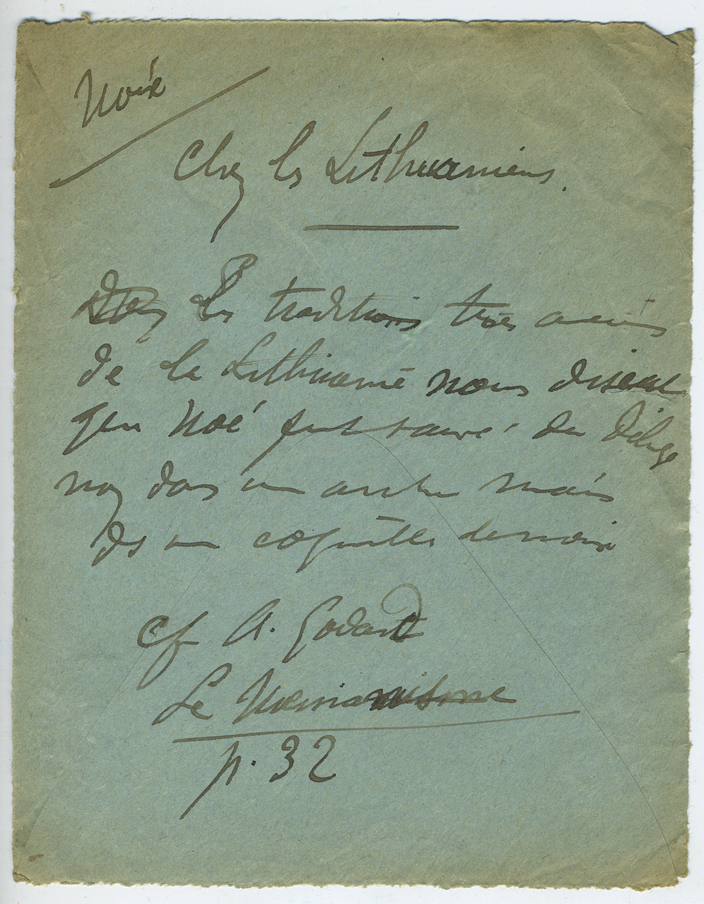 Noix
Chez les Lithuaniens.
Les traditions très
de la Lithuanie nous disent
que Noé fut sauvé du Déluge
non dans une arche mais
ds une coquille de noix
cf A. Godard
Le
p. 32